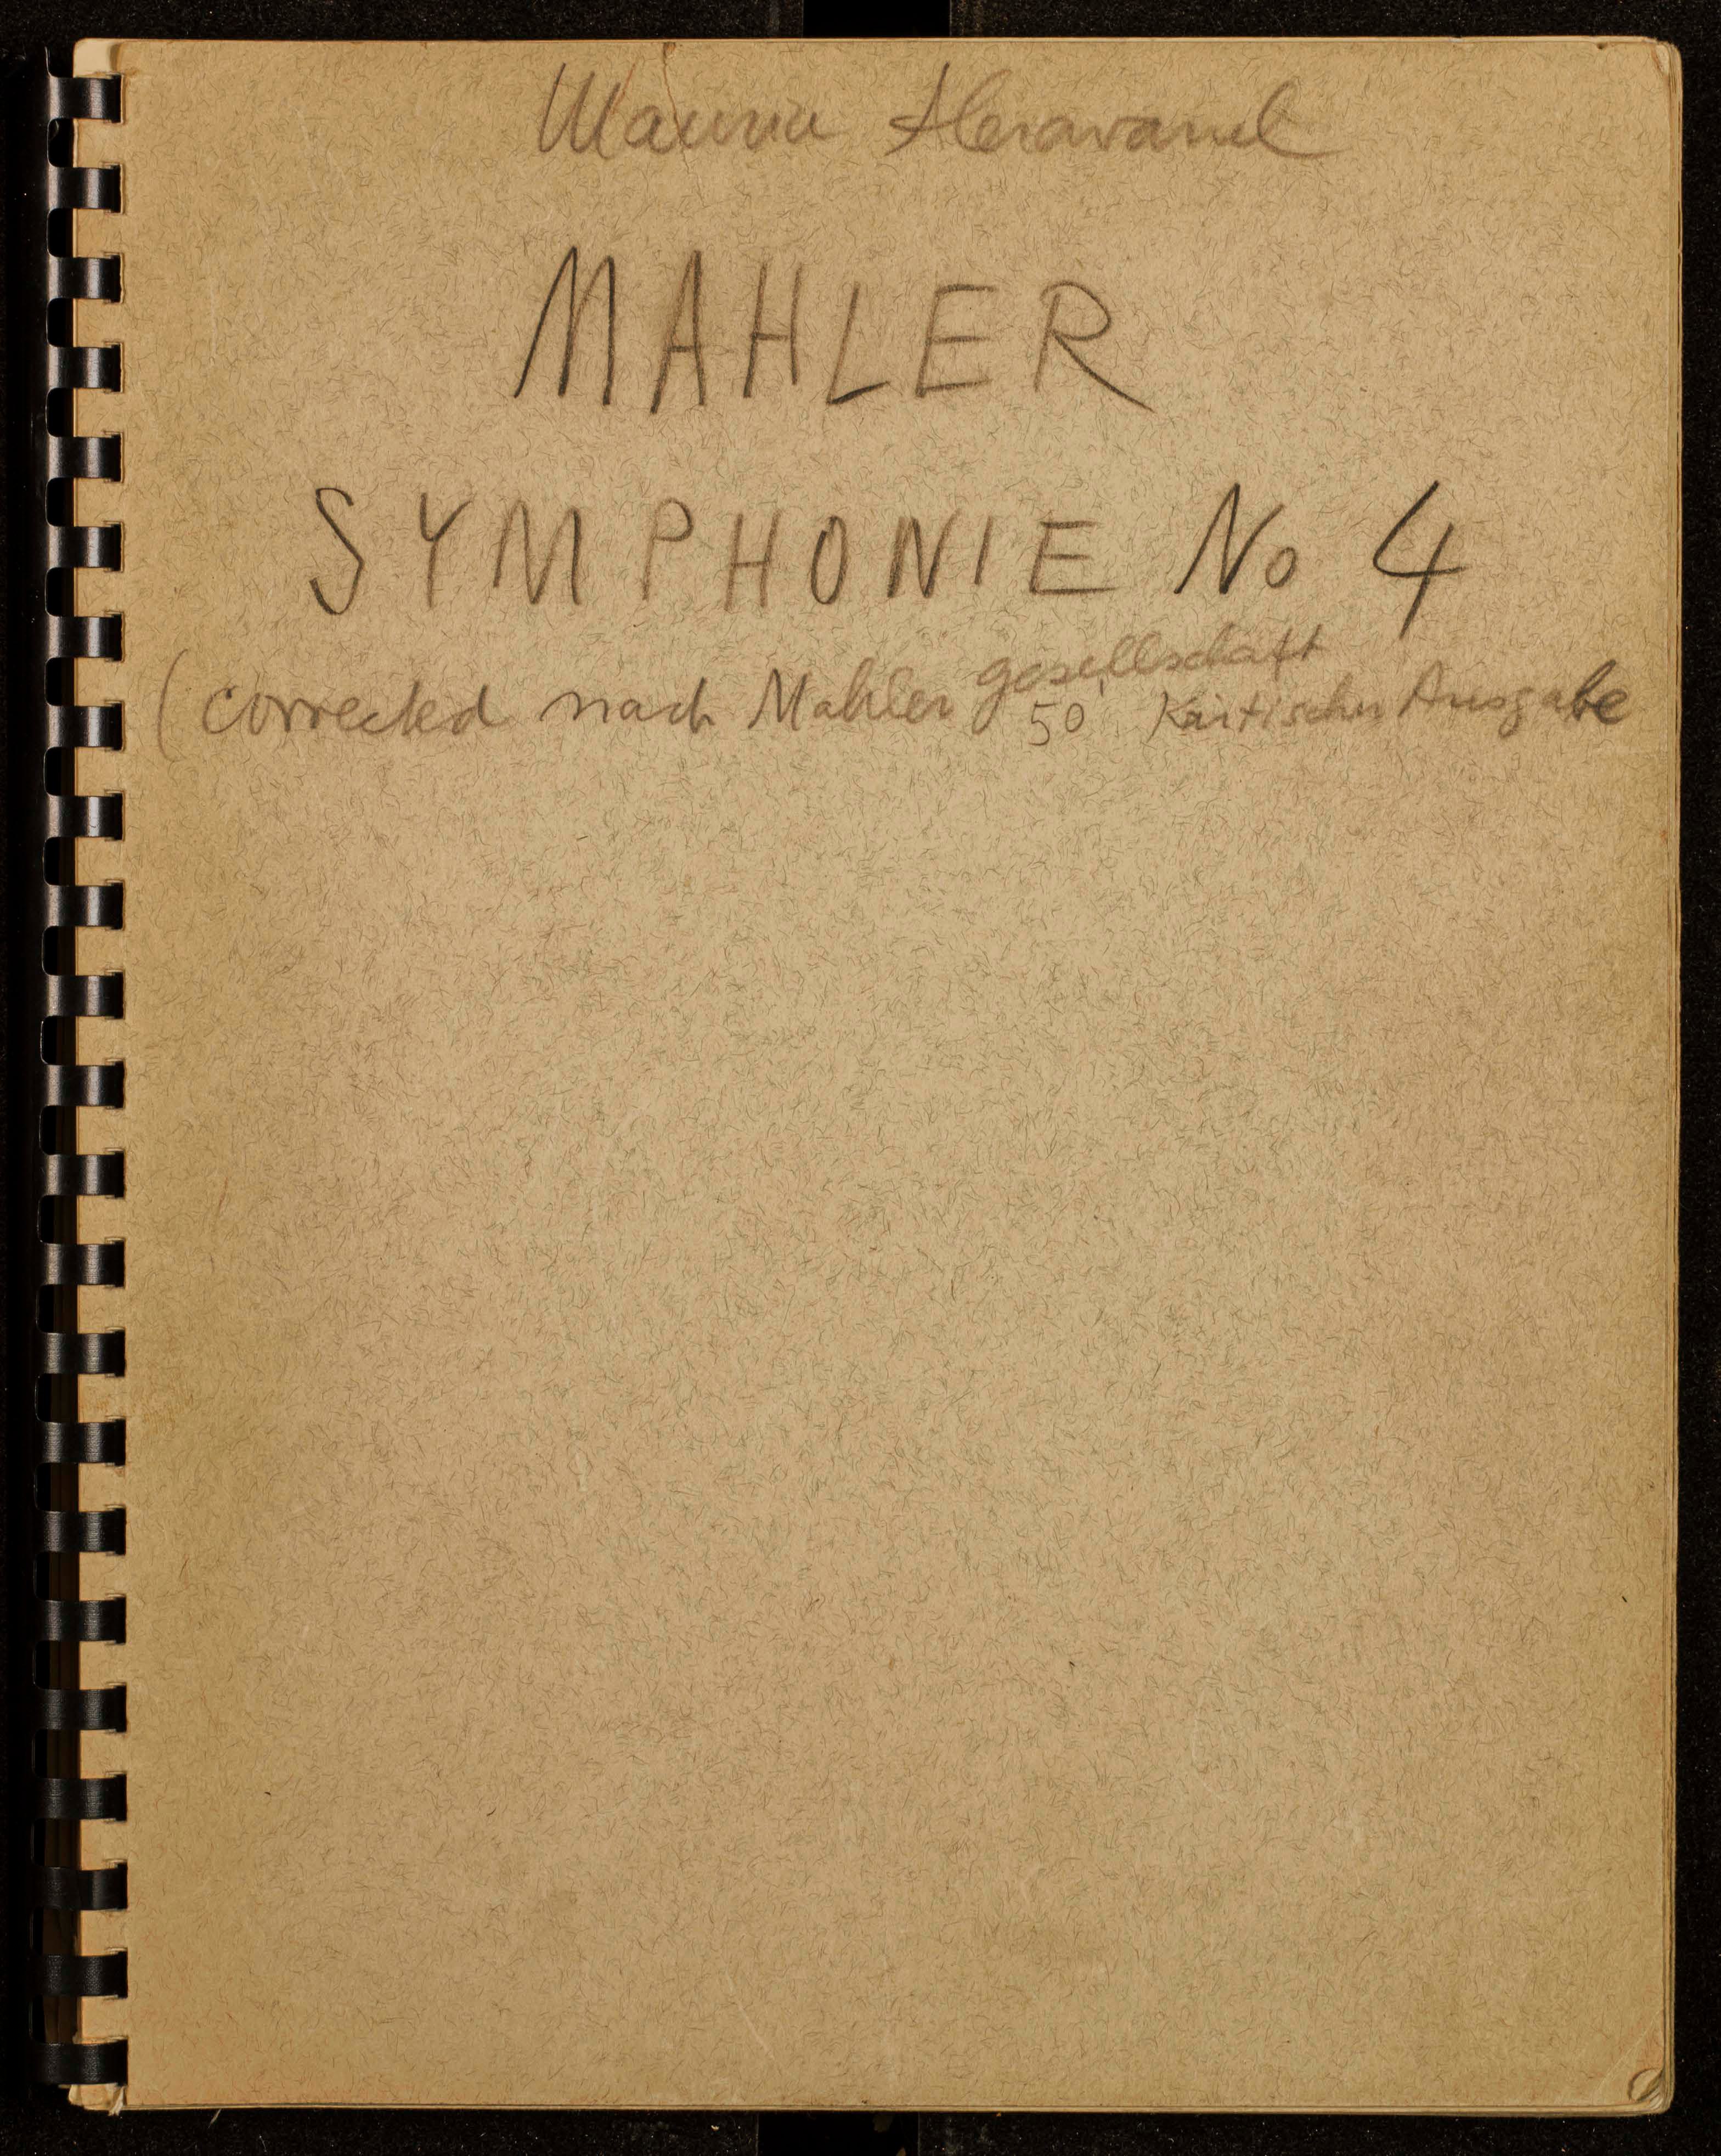 Maurice Abravanel
MAHLER
SYMPHONIE No 4
(corrected nach Mahler gesellschaft
50' Kritischer Ausgabe